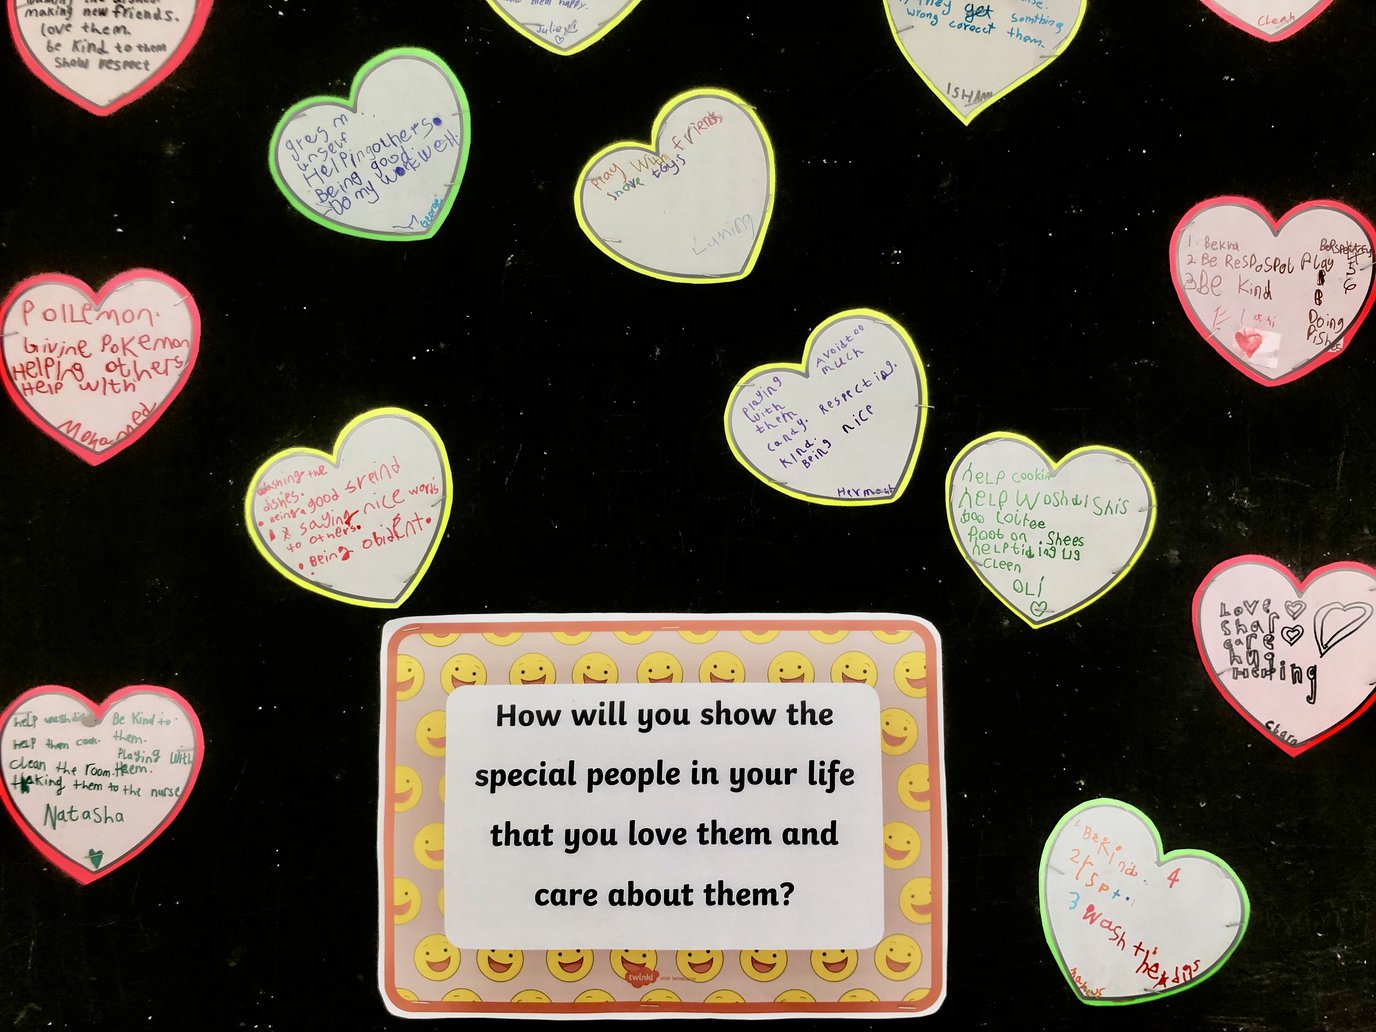 making new friends.
love them.
be kind to them
Show respect
them happy.
Julie
they get somthing
wrong corect them.
ISHAAN
Cleah
unself
Helpingothers.
Being good.
Do my work well.
George
play with friends
toys
Luning
1. Bekind
2 Be ResPosPot
3 Be Kind
Play
4
5
6
Doing
Pollemon.
Givine Pokemon
HELPing others
Help with
Mohamed
Playing
with
them
candy.
kind.
Being nice
Avoid too
much
Respecting.
Hermont
washing the
dishes.
being a good sreind
saying nice words
to others.
Being obident.
help cookin
help woshul Shis
Poot on Shees
help tiding ug
cleen
OLi
Love
Shar
care
hug
Helping
Charn
help washing
help them cook.
clean the room.
taking them to the nurse
Be Kind to
them.
Playing with
them.
Natasha
How will you show the
special people in your life
that you love them and
care about them?
twinkl
1 Be Kind.
2 rspt
3 wash the disis
4